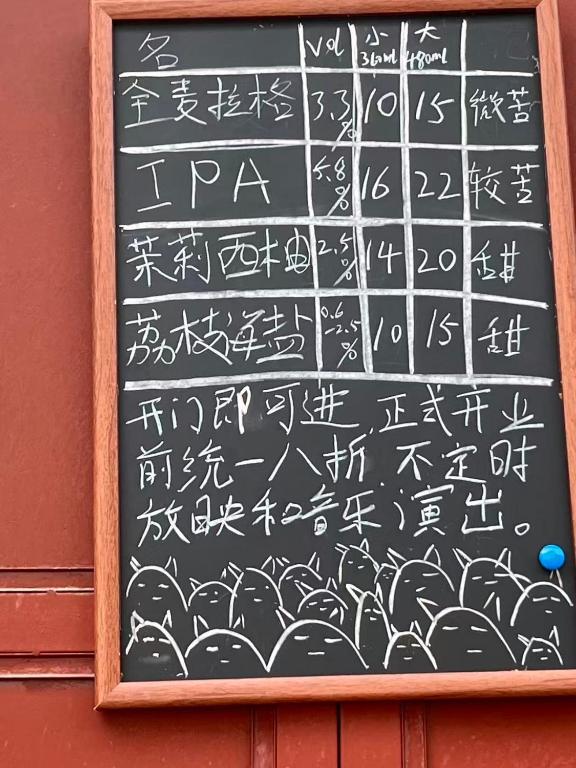 名 Vol 小 360ml 大 480ml
全麦拉格 3.3% 10 15 微苦
IPA 5.8% 16 22 较苦
茉莉西柚 2.5% 14 20 甜
荔枝海盐 0.6-2.5% 10 15 甜
开门即可进,正式开业
前统一八折,不定时
放映和音乐演出。